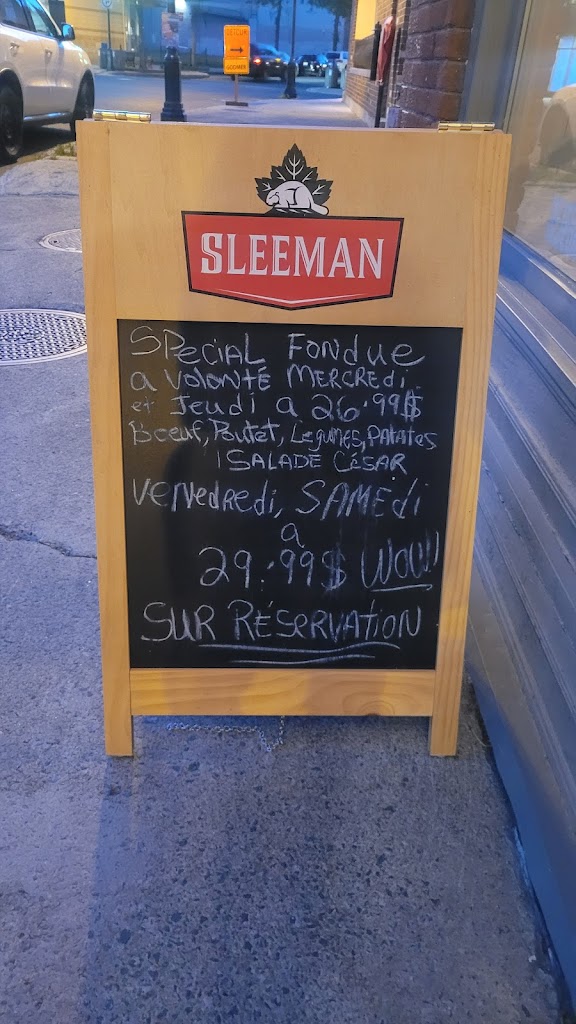 DÉTOUR
SLEEMAN
SPeciAL FonDue
a VoloNTÉ MERCREdi
et Jeudi a 26.99$
Boeuf, Poulet, LeguMes, PATATES
SALADE CÉSAR
VeNVedRedi, SAMEdi
a
29.99$ WOW!!
SUR RÉSeRVATioN